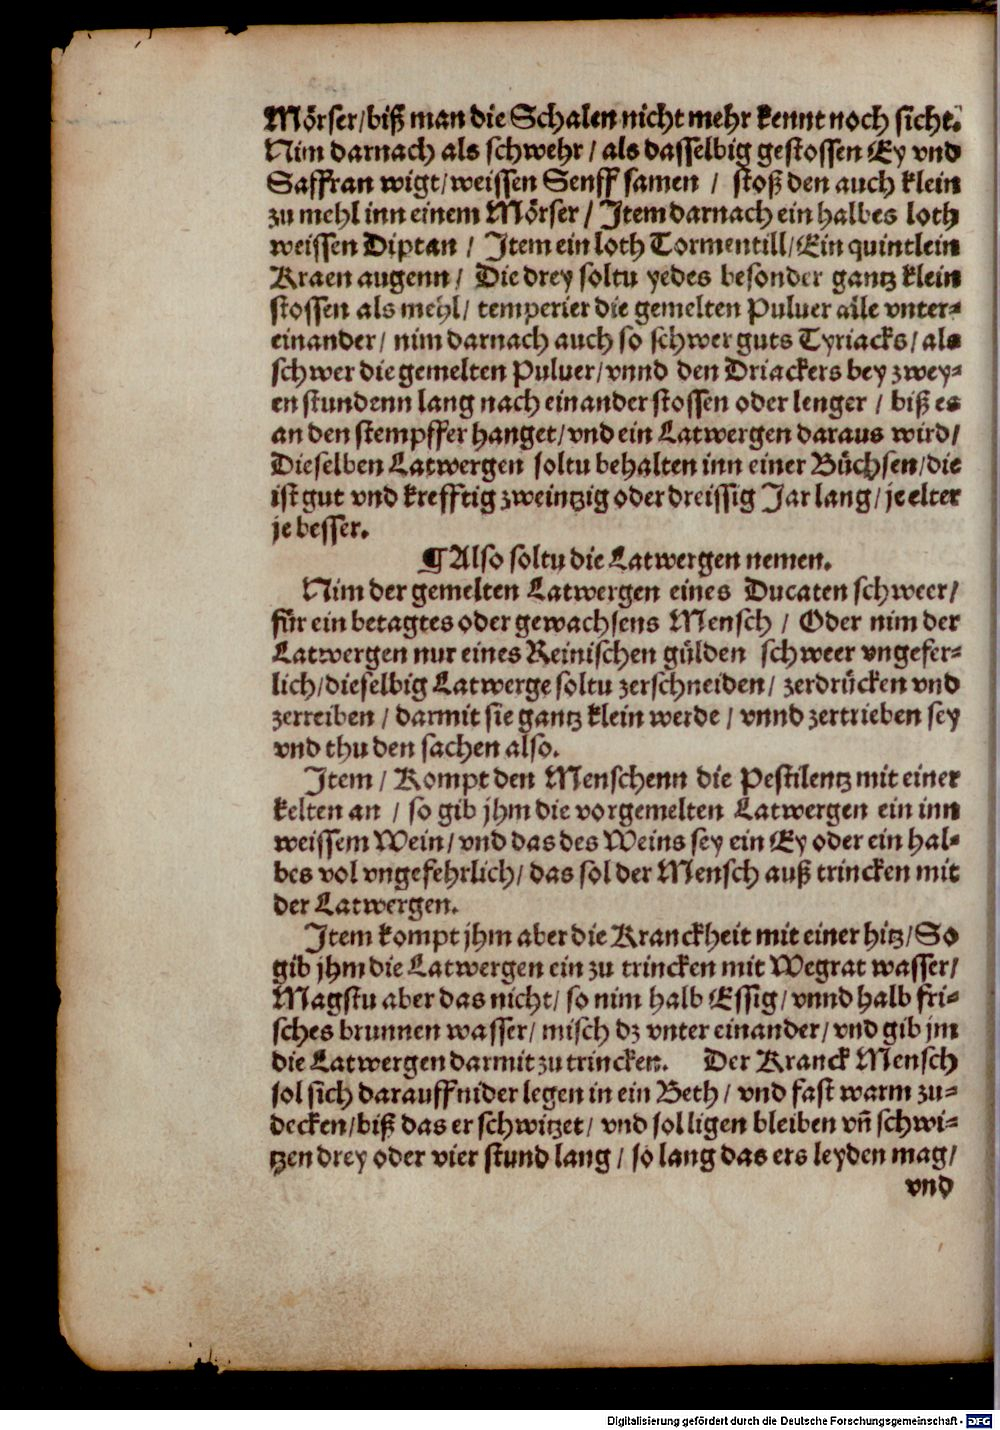 Mörser/biß man die Schalen nicht mehr kennt noch sicht.
Nim darnach als schwehr / als dasselbig gestossen Ey vnd
Saffran wigt/weissen Senff samen / stoß den auch klein
zu mehl inn einem Mörser / Item darnach ein halbes loth
weissen Diptan / Item ein loth Tormentill/Ein quintlein
Kraen augenn / Die drey soltu yedes besonder gantz klein
stossen als mehl/ temperier die gemelten Puluer alle vnter-
einander/ nim darnach auch so schwer guts Tyriacks/ als
schwer die gemelten Puluer/vnnd den Driackers bey zwey-
en stundenn lang nach einander stossen oder lenger / biß es
an den stempffer hanget/vnd ein Latwergen daraus wird/
Dieselben Latwergen soltu behalten inn einer Büchsen/die
ist gut vnd krefftig zweintzig oder dreissig Jar lang/je elter
je besser.
¶Also soltu die Latwergen nemen.
Nim der gemelten Latwergen eines Ducaten schweer/
für ein betagtes oder gewachsens Mensch / Oder nim der
Latwergen nur eines Reinischen gülden schweer vngefer-
lich/dieselbig Latwerge soltu zerschneiden/ zerdrücken vnd
zerreiben / darmit sie gantz klein werde / vnnd zertrieben sey
vnd thu den sachen also.
Item / Kompt den Menschenn die Pestilentz mit einer
kelten an / so gib jhm die vorgemelten Latwergen ein inn
weissem Wein/ vnd das des Weins sey ein Ey oder ein hal-
bes vol vngefehrlich/ das sol der Mensch auß trincken mit
der Latwergen.
Item kompt jhm aber die Kranckheit mit einer hitz/So
gib jhm die Latwergen ein zu trincken mit Wegrat wasser/
Magstu aber das nicht/ so nim halb Essig/ vnnd halb fri-
sches brunnen wasser/ misch dz vnter einander/ vnd gib jm
die Latwergen darmit zu trincken. Der Kranck Mensch
sol sich darauff nider legen in ein Beth/ vnd fast warm zu-
decken/biß das er schwitzet/ vnd sol ligen bleiben vñ schwi-
tzen drey oder vier stund lang / so lang das ers leyden mag/
vnd
Digitalisierung gefördert durch die Deutsche Forschungsgemeinschaft - DFG